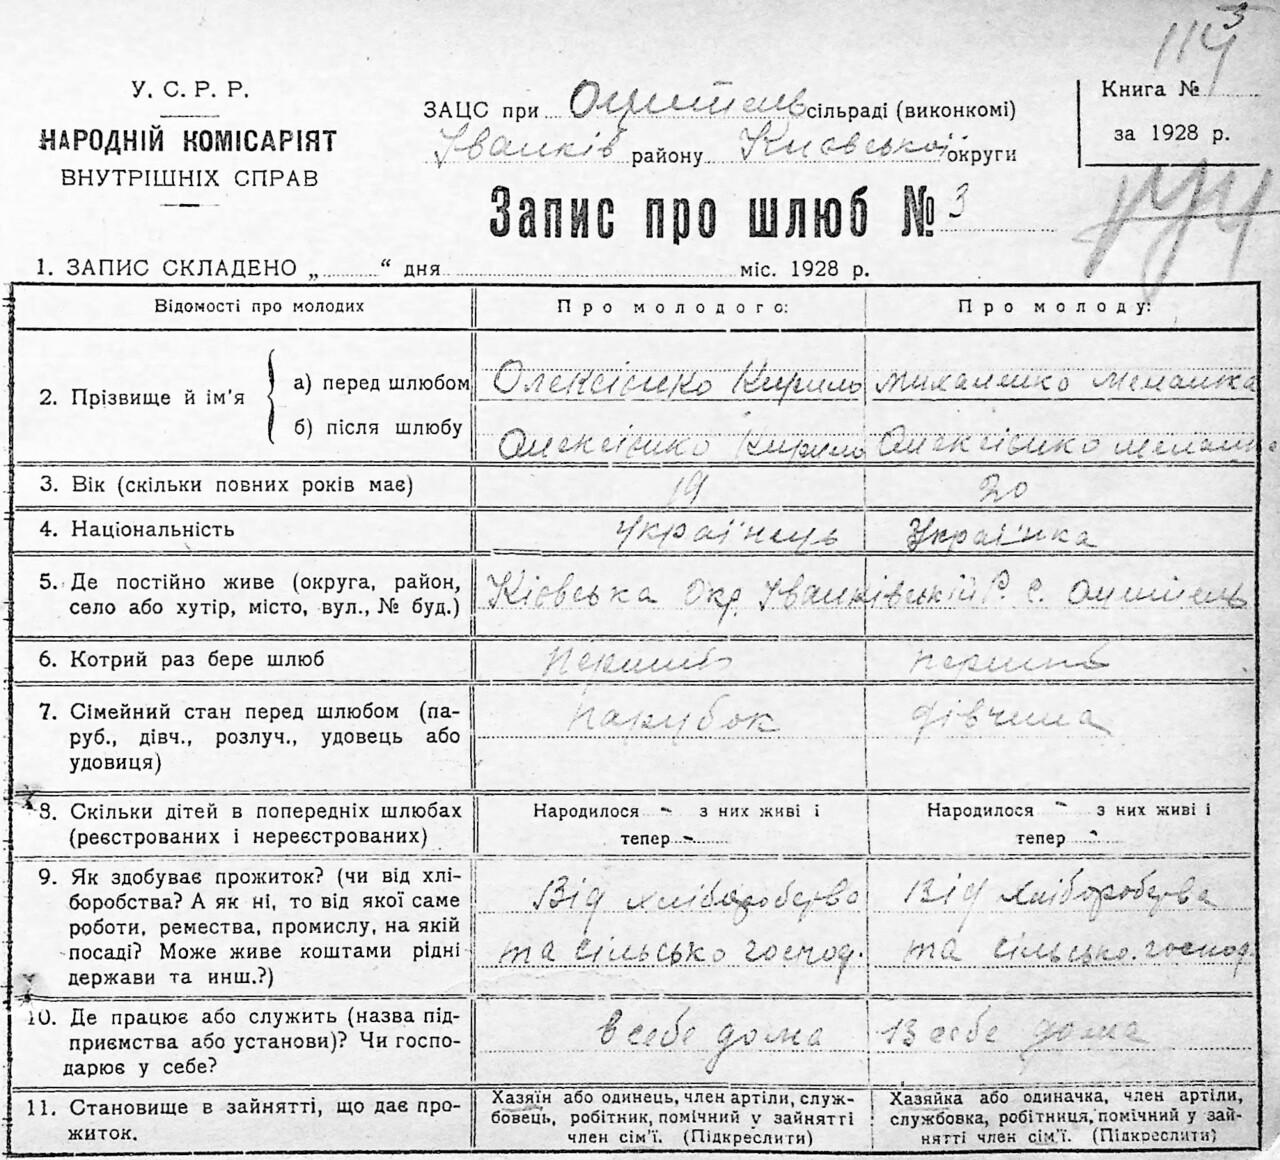 114 3
У. С. Р. Р.
НАРОДНІЙ КОМІСАРІЯТ
ВНУТРІШНІХ СПРАВ
ЗАЦС при Оцитель сільраді (виконкомі)
Іванків району Київської округи
Книга №
за 1928 р.
Запис про шлюб № 3
1. ЗАПИС СКЛАДЕНО „ “ дня міс. 1928 р.
Відомості про молодих Про молодого: Про молоду:
2. Прізвище й ім'я
а) перед шлюбом Олексієнко Кирило Михаленко Меланка
б) після шлюбу Олексієнко Кирило Олексієнко
3. Вік (скільки повних років має) 19 20
4. Національність Українець Українка
5. Де постійно живе (округа, район, село або хутір, місто, вул., № буд.) Київська Окр. Іванківський Р. С. Оцитель
6. Котрий раз бере шлюб перший перший
7. Сімейний стан перед шлюбом (па-
руб., дівч., розлуч., удовець або
удовиця) парубок дівчина
8. Скільки дітей в попередніх шлюбах Народилося - з них живі і Народилося - з них живі і
(реєстрованих і нереєстрованих) тепер - тепер -
9. Як здобуває прожиток? (чи від хлі-
боробства? А як ні, то від якої саме Від хліборобства Від хліборобства
роботи, ремества, промислу, на якій
посаді? Може живе коштами рідні та сільсько господ. та сільсько. господ.
держави та инш.?)
10. Де працює або служить (назва під-
приємства або установи)? Чи госпо- в себе дома В себе дома
дарює у себе?
11. Становище в зайнятті, що дає про-
житок.
Хазяїн або одинець, член артіли, служ-
бовець, робітник, помічний у зайнятті
член сім'ї. (Підкреслити)
Хазяйка або одиначка, член артіли,
службовка, робітниця, помічний у зай-
нятті член сім'ї. (Підкреслити)